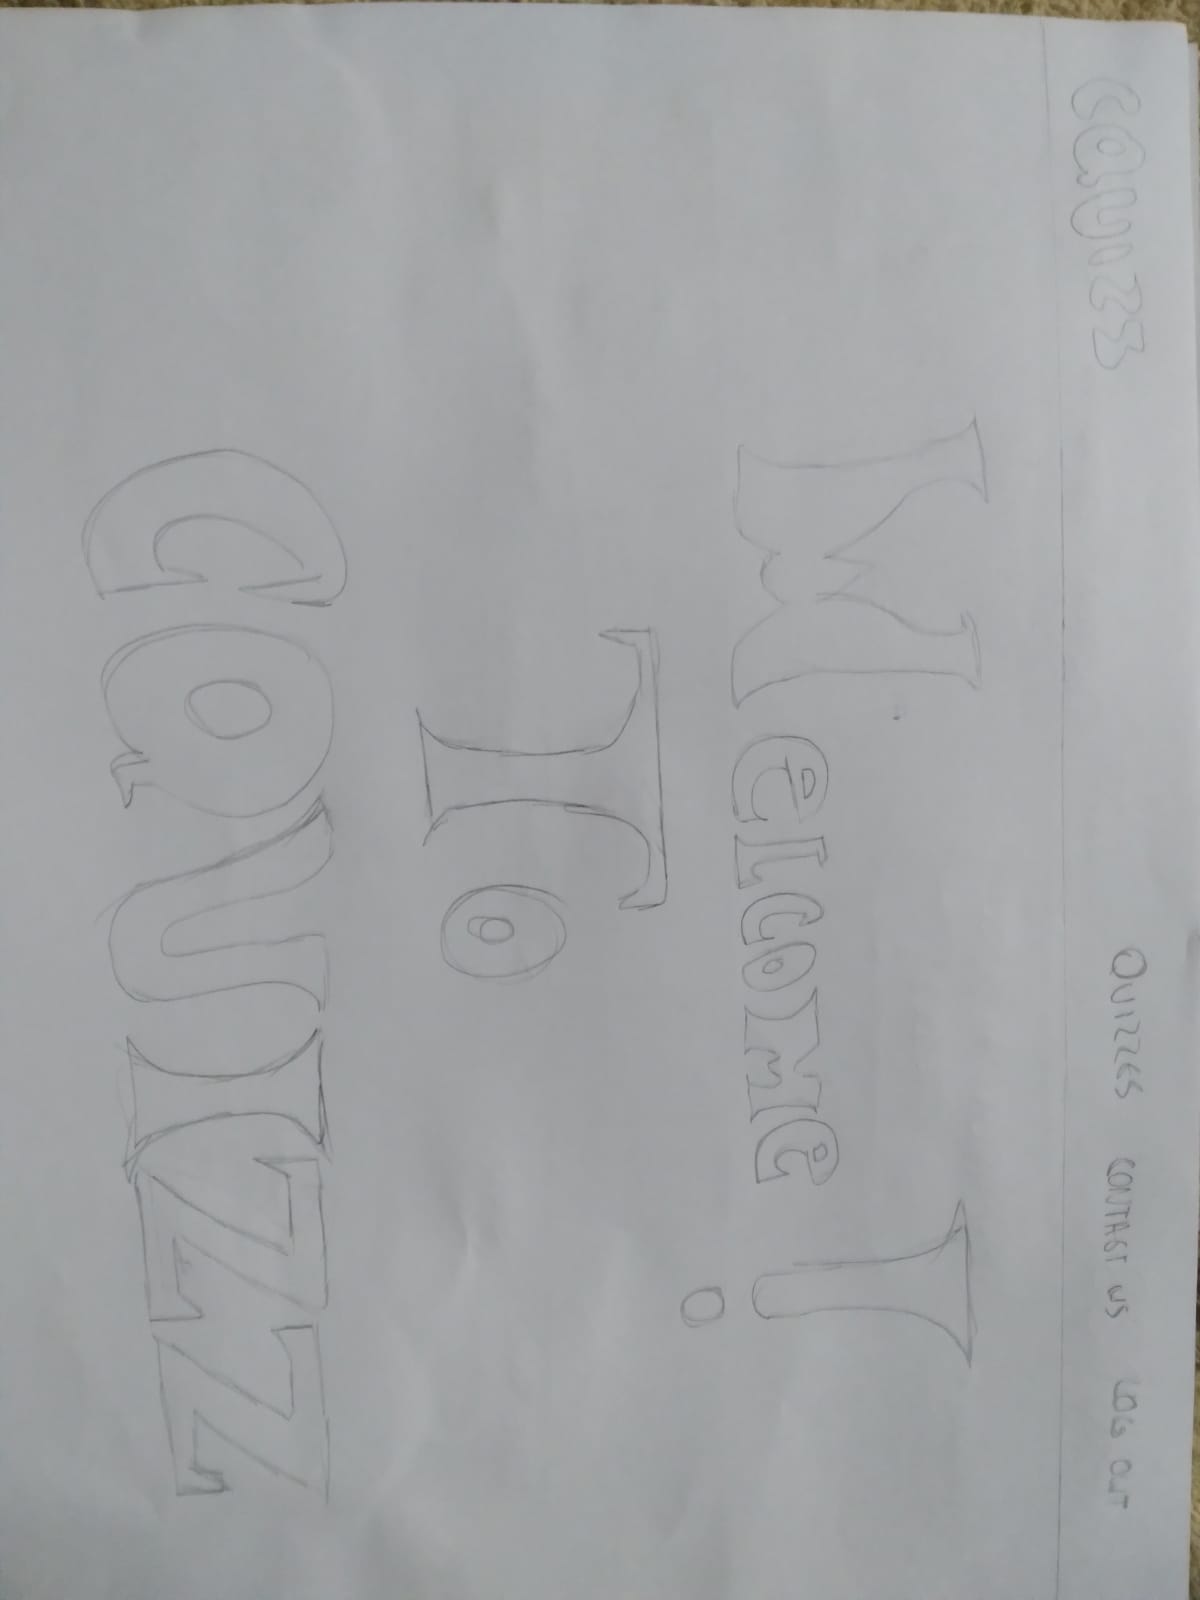 CQUIZZ QUIZZES CONTACT US LOG OUT
Welcome!
To
CQUIZZ